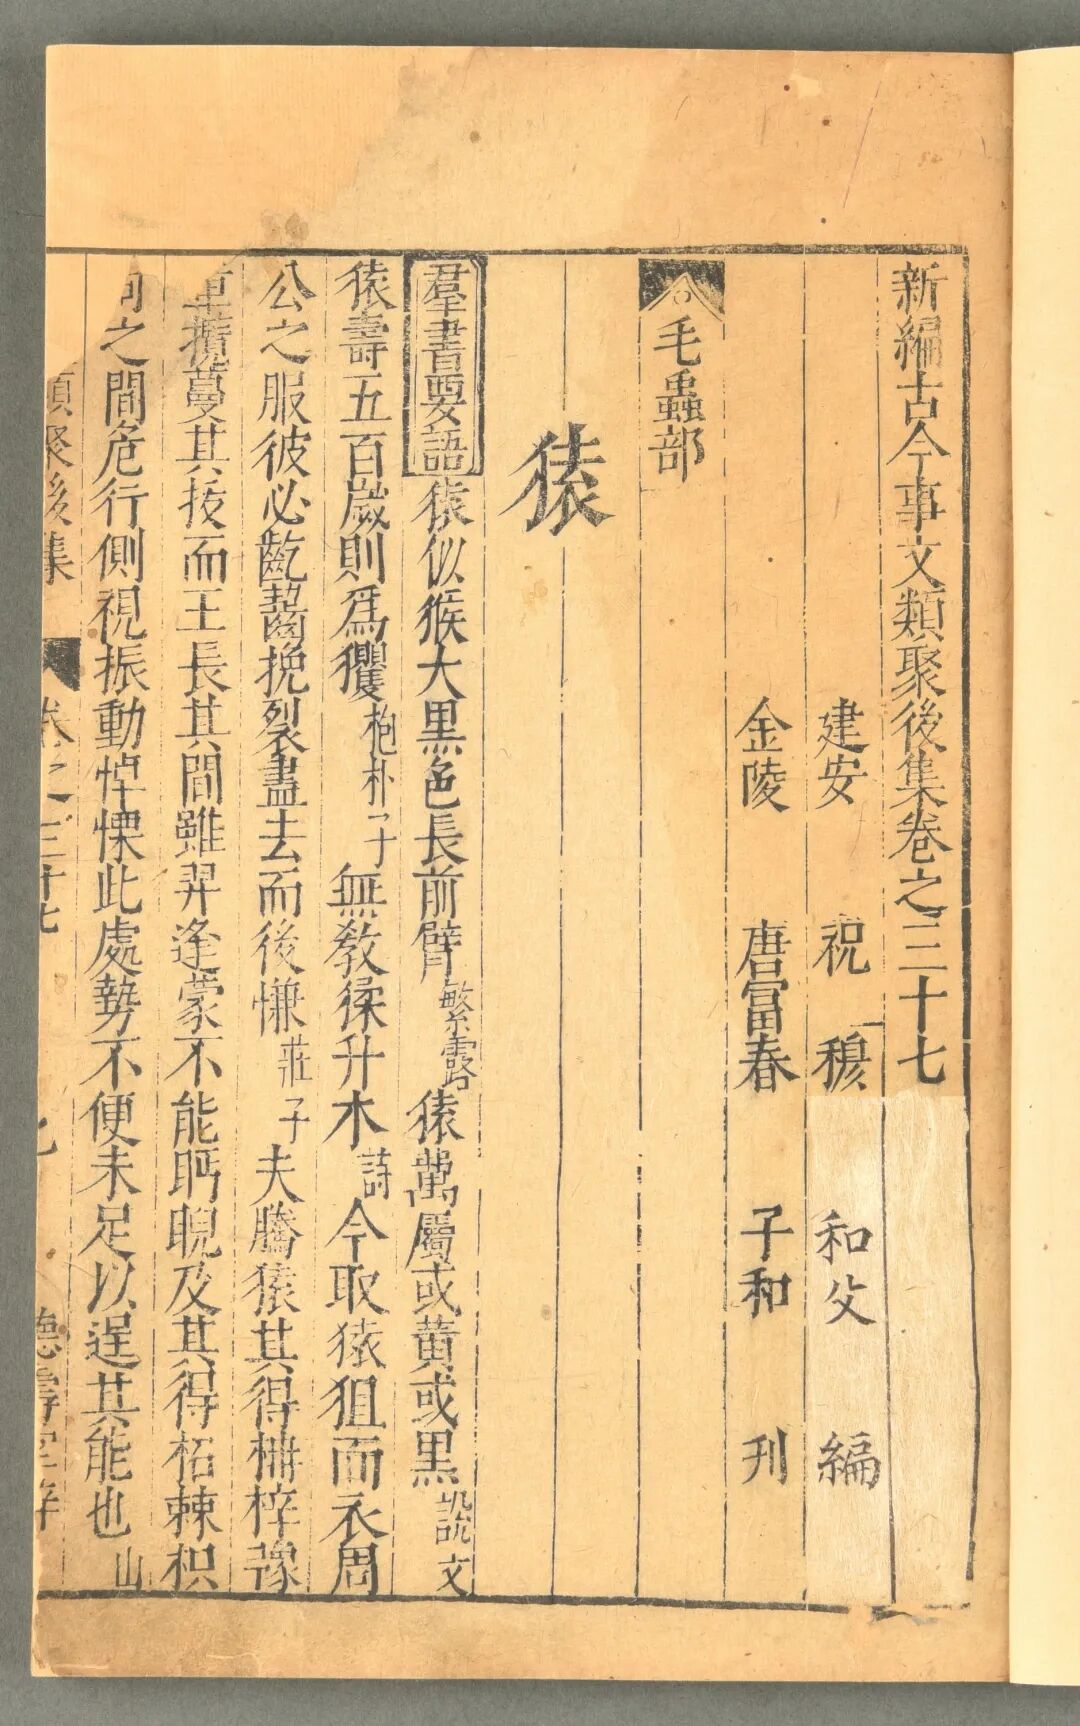 新編古今事文類聚後集卷之三十七
建安 祝穆 和父 編
金陵 唐富春 子和 刋
毛蟲部
猿
羣書要語猿似猴大黒色長前臂繁露猿蝯屬或黃或黒說文
猿壽五百歲則爲玃抱朴子無敎猱升木詩今取猿狙而衣周
公之服彼必齕齧挽裂盡去而後慊莊子夫騰猿其得楠梓豫
章攬蔓其技而王長其間雖羿逢蒙不能眄睨及其得柘棘枳
枸之間危行側視振動悼慄此處勢不便未足以逞其能也山
類聚後集 卷之三十七 德壽堂梓